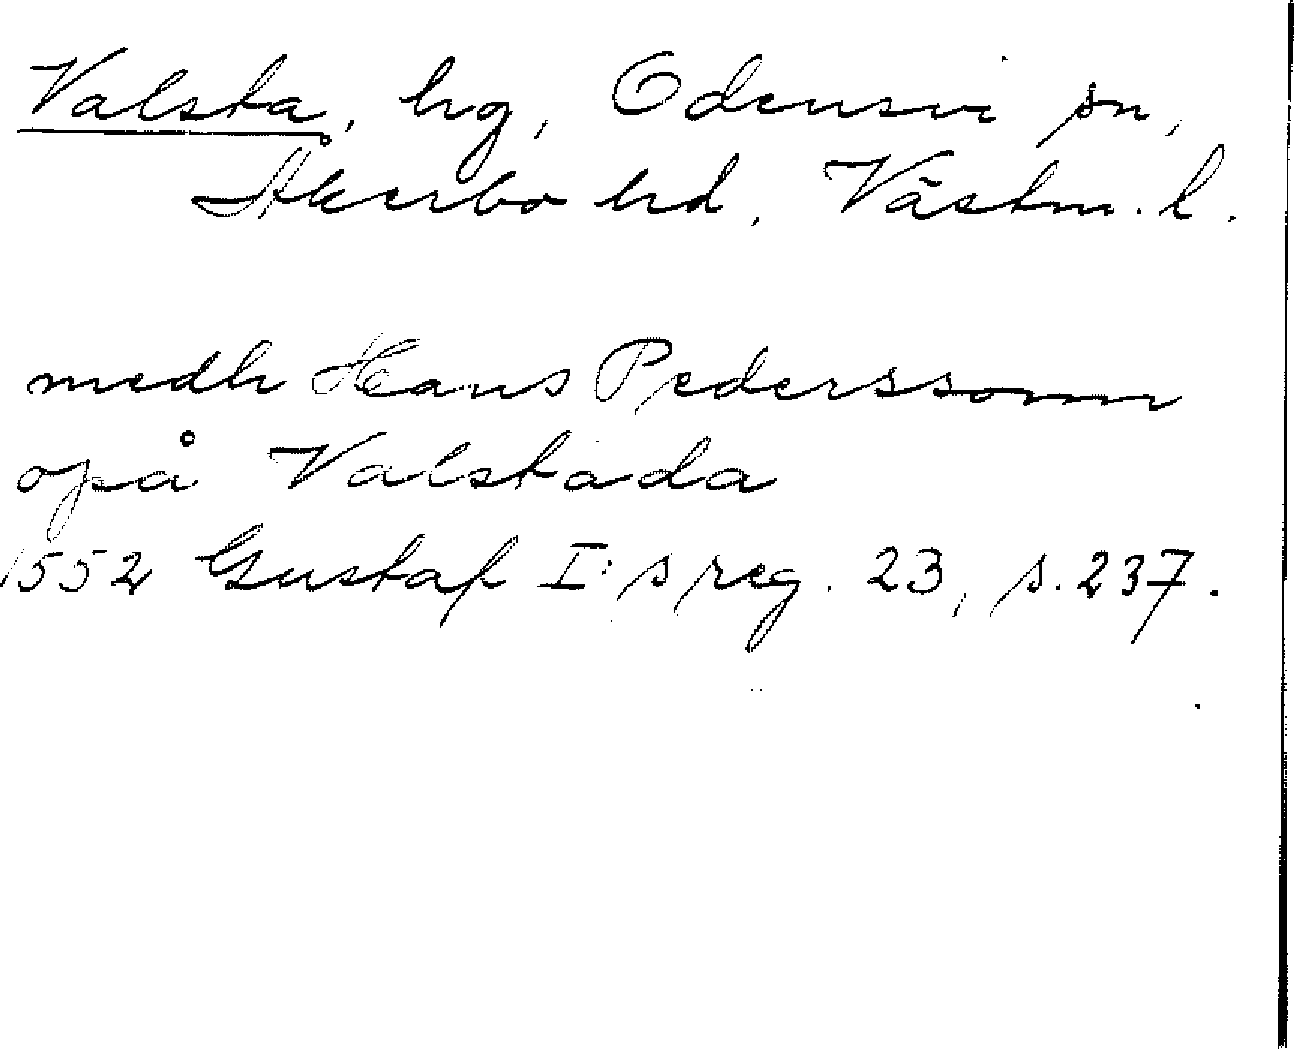 Valsta, hg, Odensvi sn,
Åkerbo hd, Västm. l.
medh Hans Pederssonn
opå Valstada
1552 Gustaf I:s reg. 23, s. 237.